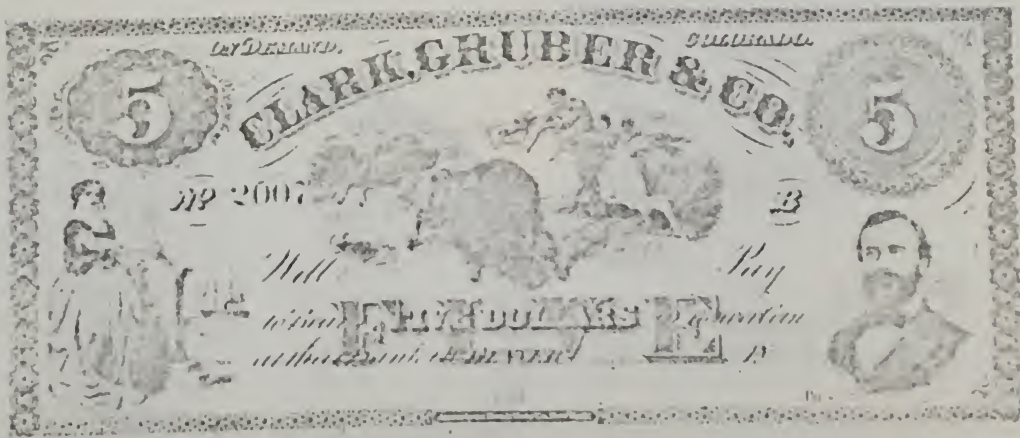 ON DEMAND. COLORADO.
CLARK, GRUBER & CO.
5 5
Nº 2007 B
Will Pay
FIVE DOLLARS
at their Bank in DENVER